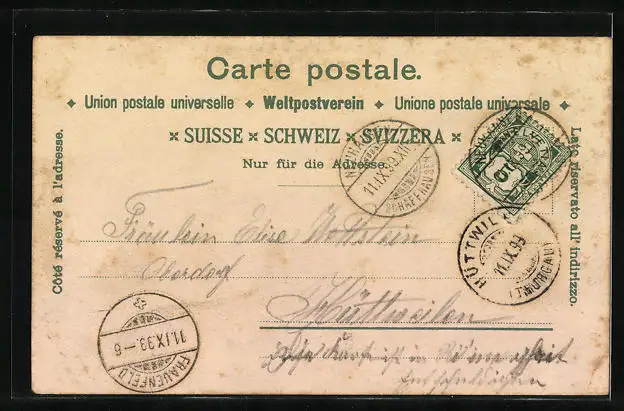 Carte postale.
Union postale universelle ✦ Weltpostverein ✦ Unione postale universale
SUISSE × SCHWEIZ × SVIZZERA
Nur für die Adresse.
Côté réservé à l'adresse.
Lato riservato all' indirizzo.
NEUHAUSEN
11.IX.99.XII
SCHAFFHAUSEN
HÜTTWILEN
11.IX.99
(THURGAU)
Fräulein Elise Wottstein
Oberdorf
Hüttweilen
entschuldigen
FRAUENFELD
11.IX.99.-6